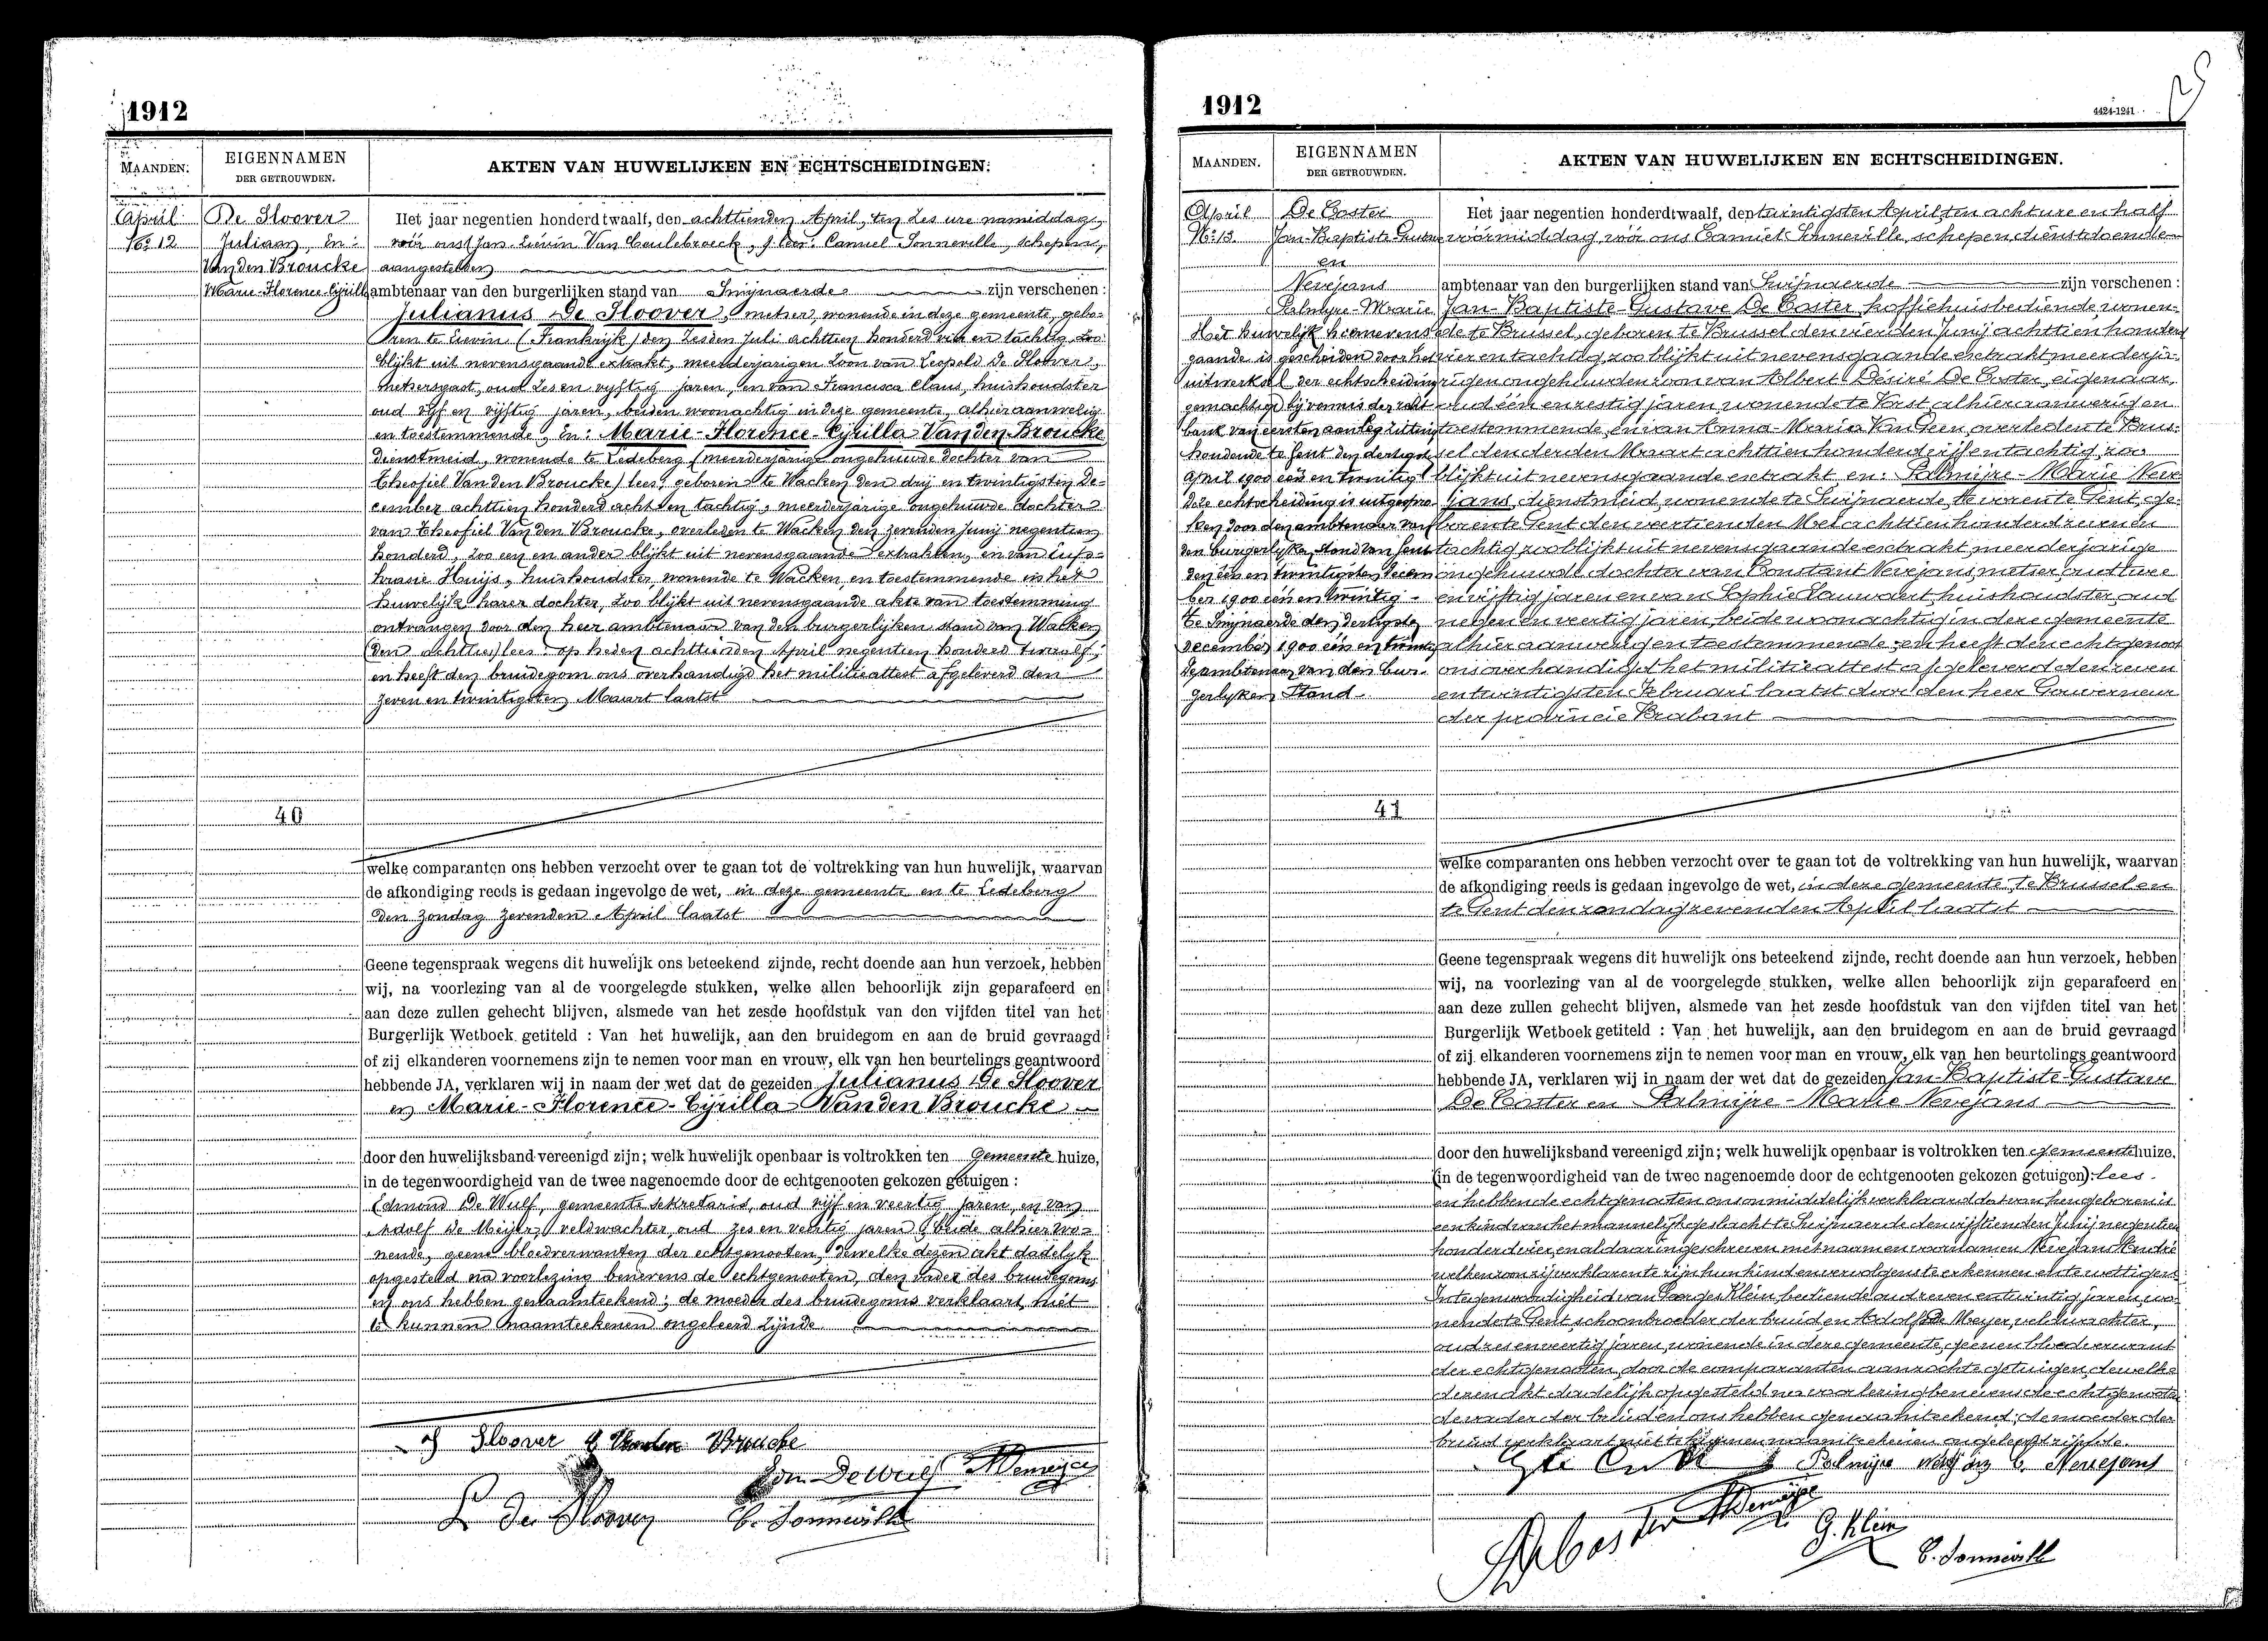 1912
MAANDEN.
EIGENNAMEN
DER GETROUWDEN.
AKTEN VAN HUWELIJKEN EN ECHTSCHEIDINGEN.
April
No 12
De Sloover
Juliaan, En:
Van den Broucke
Marie-Florence-Cyrilla
Het jaar negentien honderd twaalf, den achttienden April, ten zes ure namiddag,
vóór ons (Jan Lievin Van Caulebroeck,) leer: Camiel Sonneville, schepene,
aangestelden
ambtenaar van den burgerlijken stand van Swijnaerde zijn verschenen :
Julianus De Sloover, metser, wonende in deze gemeente, gebo=
ren te Lievin (Frankrijk) den zesden Juli achttien honderd vier en tachtig, zoo
blijkt uit nevensgaande extrakt, meerderjarigen zoon van Leopold De Sloover,
metsersgast, oud zes en vyftig jaren, en van Francisca Claus, huishoudster
oud vyf en vijftig jaren, beiden woonachtig in deze gemeente, alhier aanwezig
en toestemmende, En: Marie-Florence-Cyrilla Van den Broucke
dienstmeid, wonende te Ledeberg (meerderjarige ongehuwde dochter van
Theofiel Van den Broucke) lees: geboren te Wacken den drij en twintigsten De=
cember achttien honderd acht en tachtig, meerderjarige ongehuwde dochter
van Theofiel Van den Broucke, overleden te Wacken den zevenden Junij negentien
honderd, zoo een en ander blijkt uit nevensgaande extrakten, en van Eufo=
krasie Huijs, huishoudster, wonende te Wacken en toestemmende in het
huwelijk harer dochter, zoo blijkt uit nevensgaande akte van toestemming
ontvangen door den heer ambtenaar van den burgerlijken stand van Wacken
(den achttien) lees: op heden achttienden April negentien honderd twaalf;
en heeft den bruidegom ons overhandigd het militieattest afgeleverd den
zeven en twintigsten Maart laatst
40
welke comparanten ons hebben verzocht over te gaan tot de voltrekking van hun huwelijk, waarvan
de afkondiging reeds is gedaan ingevolge de wet, in deze gemeente en te Ledeberg
den zondag zevenden April laatst
Geene tegenspraak wegens dit huwelijk ons beteekend zijnde, recht doende aan hun verzoek, hebben
wij, na voorlezing van al de voorgelegde stukken, welke allen behoorlijk zijn geparafeerd en
aan deze zullen gehecht blijven, alsmede van het zesde hoofdstuk van den vijfden titel van het
Burgerlijk Wetboek getiteld : Van het huwelijk, aan den bruidegom en aan de bruid gevraagd
of zij elkanderen voornemens zijn te nemen voor man en vrouw, elk van hen beurtelings geantwoord
hebbende JA, verklaren wij in naam der wet dat de gezeiden Julianus De Sloover
en Marie-Florence-Cyrilla Van den Broucke
door den huwelijksband vereenigd zijn; welk huwelijk openbaar is voltrokken ten Gemeente huize,
in de tegenwoordigheid van de twee nagenoemde door de echtgenooten gekozen getuigen :
Edmond De Wulf, gemeente sekretaris, oud vijf en veertig jaren, en van
Adolf De Meijer, veldwachter, oud zes en veertig jaren, beide alhier wo=
nende, geene bloedverwanten der echtgenooten, dewelke dezen akt dadelyk
opgesteld na voorlezing benevens de echtgenooten, den vader des bruidegoms
en ons hebben genaamteekend; de moeder des bruidegoms verklaart niet
te kunnen naamteekenen ongeleerd zijnde.
J Sloover Vanden Broucke
Edm. De Wulf ADemeijer
L De Sloover C. Sonneville
1912
4424-1241
MAANDEN.
EIGENNAMEN
DER GETROUWDEN.
AKTEN VAN HUWELIJKEN EN ECHTSCHEIDINGEN.
April
No 13.
De Coster
Jan-Baptiste Gustave
en
Nevejans
Palmyre-Marie
Het huwelijk hiernevens
gaande is gescheiden door het
uitwerksel der echtscheiding
gemachtigd bij vonnis der recht
bank van eersten aanleg zitting
houdende te Gent den dertigsten
April 1900 een en twintig
Deze echtscheiding is uitgespro
ken door den ambtenaar van
den burgerlyken stand van Gent
den een en twintigsten Decem
ber 1900 een en twintig.
Te Swijnaerde den dertigsten
December 1900 een en twintig
De ambtenaar van den bur-
gerlyken Stand.
Het jaar negentien honderd twaalf, den twintigsten April ten acht ure en half
vóórmiddag, vóór ons Camiel Sonneville, schepen dienstdoende
ambtenaar van den burgerlijken stand van Swijnaerde zijn verschenen :
Jan-Baptiste-Gustave De Coster, koffiehuisbediende, wonen-
de te Brussel, geboren te Brussel den vierden Junij achttien honderd
vier en tachtig, zoo blijkt uit nevensgaande extrakt, meerderja-
rigen ongehuwden zoon van Albert Désiré De Coster, eigenaar,
oud één en zestig jaren, wonende te Vorst alhier aanwezig en
toestemmende, en van Anna-Maria Van Geen, overleden te Brus-
sel den derden Maart achttien honderd vijf en tachtig, zoo
blijkt uit nevensgaande extrakt en: Palmijre-Marie Neve-
jans, dienstmeid, wonende te Swijnaerde, te voren te Gent, ge-
boren te Gent den veertienden Mei achttien honderd zeven en
tachtig zoo blijkt uit nevensgaande extrakt meerderjarige
ongehuwde dochter van Constant Nevejans, metser, oud twee
en vijftig jaren en van Sophie Sauwaert, huishoudster, oud
negen en veertig jaren, beiden woonachtig in deze gemeente
alhier aanwezig en toestemmende, en heeft den echtgenoot
ons overhandigd het militieattest afgeleverd den zeven
en twintigsten Februari laatst door den heer Gouverneur
der provincie Brabant
41
welke comparanten ons hebben verzocht over te gaan tot de voltrekking van hun huwelijk, waarvan
de afkondiging reeds is gedaan ingevolge de wet, in deze gemeente, te Brussel en
te Gent den zondag zevenden April laatst
Geene tegenspraak wegens dit huwelijk ons beteekend zijnde, recht doende aan hun verzoek, hebben
wij, na voorlezing van al de voorgelegde stukken, welke allen behoorlijk zijn geparafeerd en
aan deze zullen gehecht blijven, alsmede van het zesde hoofdstuk van den vijfden titel van het
Burgerlijk Wetboek getiteld : Van het huwelijk, aan den bruidegom en aan de bruid gevraagd
of zij elkanderen voornemens zijn te nemen voor man en vrouw, elk van hen beurtelings geantwoord
hebbende JA, verklaren wij in naam der wet dat de gezeiden Jan-Baptiste-Gustave
De Coster en Palmijre-Marie Nevejans
door den huwelijksband vereenigd zijn; welk huwelijk openbaar is voltrokken ten gemeentehuize,
(in de tegenwoordigheid van de twee nagenoemde door de echtgenooten gekozen getuigen): lees.
en hebben de echtgenooten ons onmiddelijk verklaard dat van hen geboren is
een kind van het mannelijk geslacht te Swijnaerde den vijftienden Junij negentien
honderd vier, en aldaar ingeschreven met naam en voornamen Nevejans André
welken zoon zij verklaren te zijn hun kind en vervolgens te erkennen en te wettigen.
In tegenwoordigheid van George Klein, bediende oud zeven en twintig jaren, wo-
nende te Gent schoonbroeder der bruid en Adolf De Meyer, veldwachter,
oud zes en veertig jaren, wonende in deze gemeente, geenen bloedverwant
der echtgenooten, door de comparanten aanzochte getuigen, dewelke
dezen akt dadelijk opgesteld na voorlezing benevens de echtgenooten
de vader der bruid en ons hebben genaamteekend; de moeder der
bruid verklaart niet te kunnen naamteekenen ongeleerd zijnde.
Palmijre Nevejans C. Nevejans
ADecoster ADemeijer
G. Klein
C. Sonneville